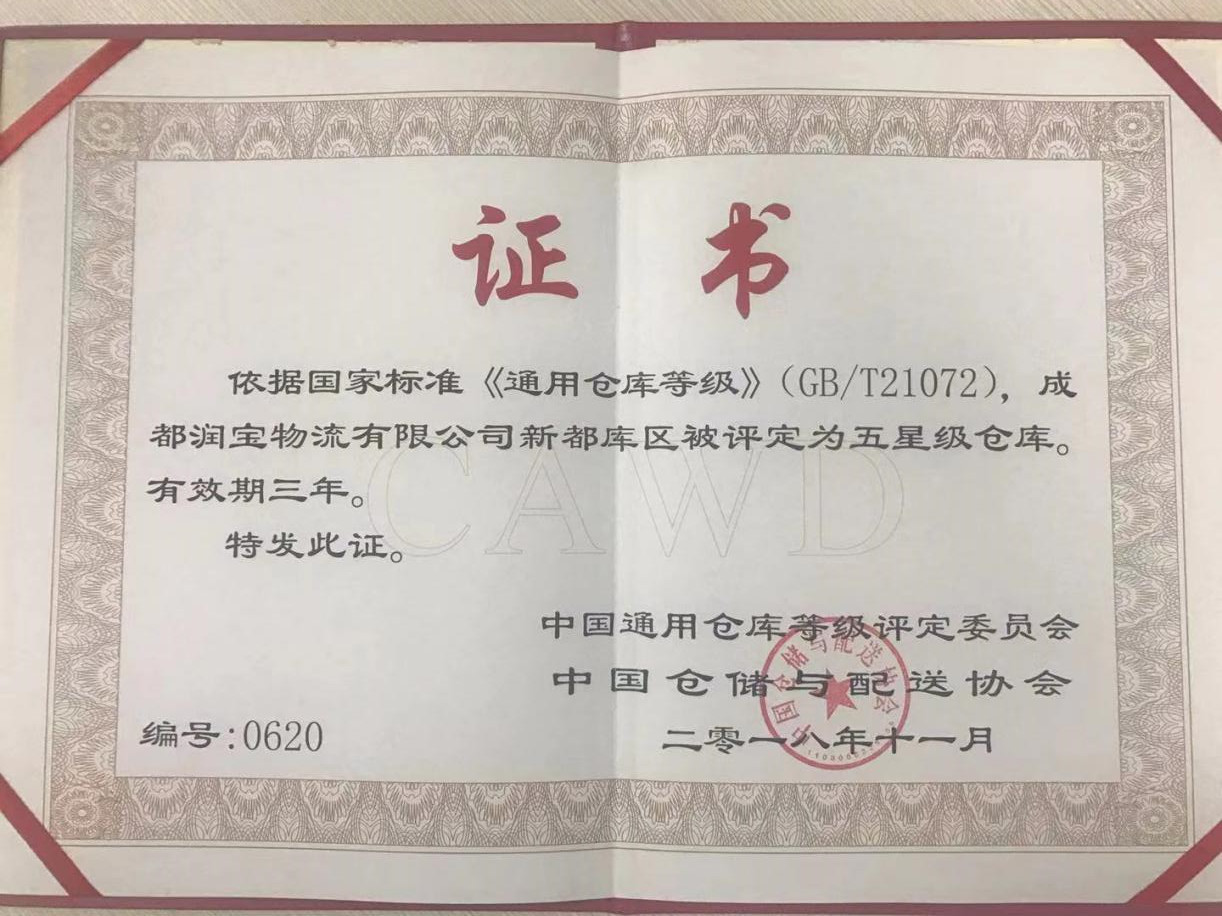 证书
依据国家标准《通用仓库等级》(GB/T21072)，成
都润宝物流有限公司新都库区被评定为五星级仓库。
有效期三年。
CAWD
特发此证。
中国通用仓库等级评定委员会
中国仓储与配送协会
中国仓储与配送协会
编号:0620
二零一八年十一月